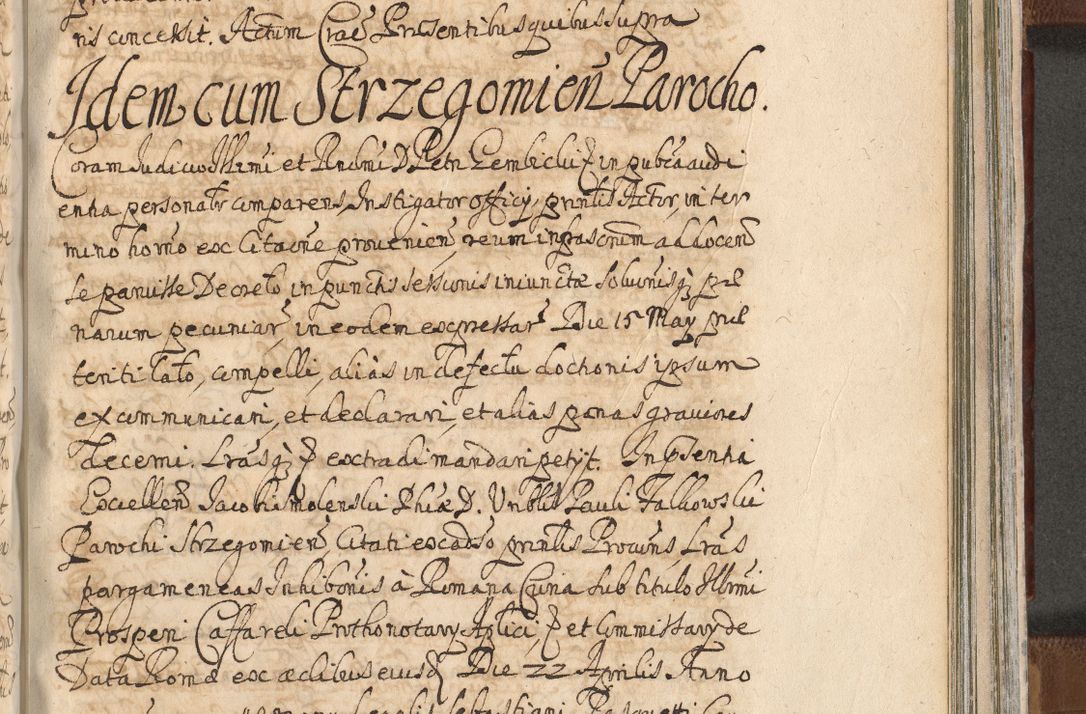 ris concessit. Actum Crac Præsentibus quibus supra
Idem cum Strzegomien Parocho.
Coram Judicio Illmi et Rndmi D Petri Gembicki in publica audi
entia personalr comparens, Instigator officij, prntis Actor, in ter
mino homo ex Citatione provenien, reum infrascrptum ad docen
se paruisse Decreto in punctis sessionis iniunctæ solutionisq3 pæ
narum pecuniar, in eodem expressar Die 15 Maij præ
teriti lato, compelli, alias in defectu doctionis ipsum
excommunicari, et declarari, et alias pænas graviores
decerni. Lrasq3 extradi mandari petijt. In Psentia
Excellen Jacobi Smolenski Phiæ D. Vnblis Pauli Falkowski
Parochi Strzegomien, Citati ex adso prntis Procuris, Lras
pargameneas Inhibonis à Romana Curia sub titulo Illrmi
Prosperi Caffareli Prothonotarij Aplici, et Commissarij de
Data Romæ ex ædibus eiusd Die 22 Aprilis Anno